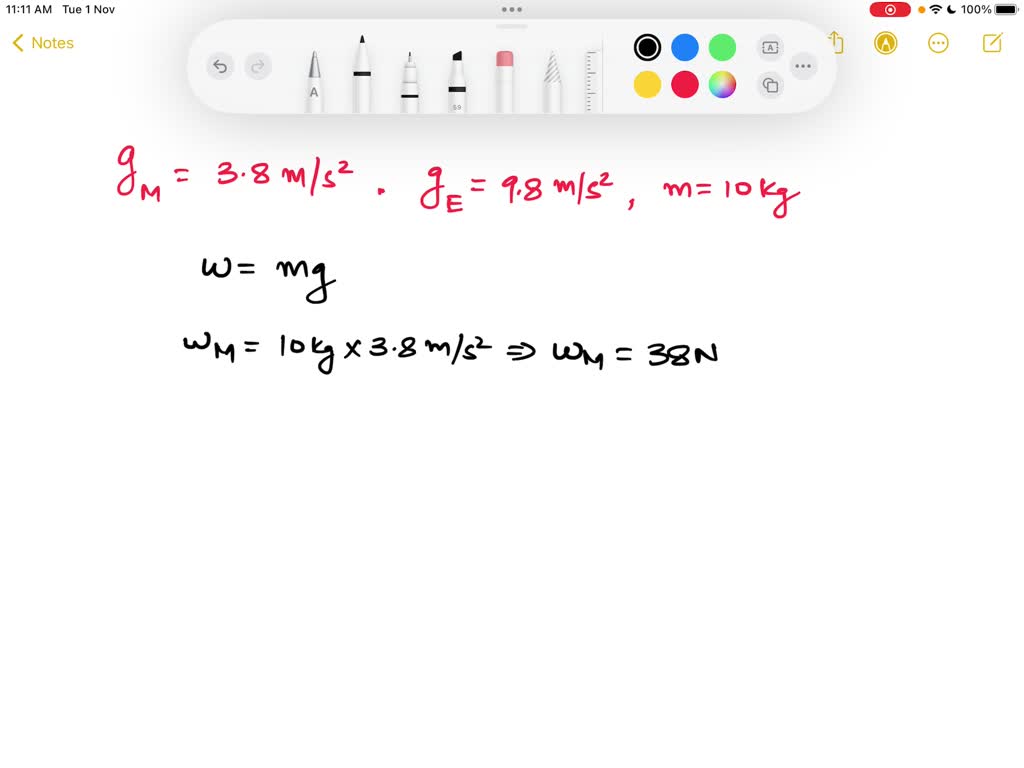 11:11 AM Tue 1 Nov 100%
Notes
A
A
59
g_M = 3.8 m/s² . g_E = 9.8 m/s², m = 10 kg
w = mg
w_M = 10 kg × 3.8 m/s² ⇒ w_M = 38 N